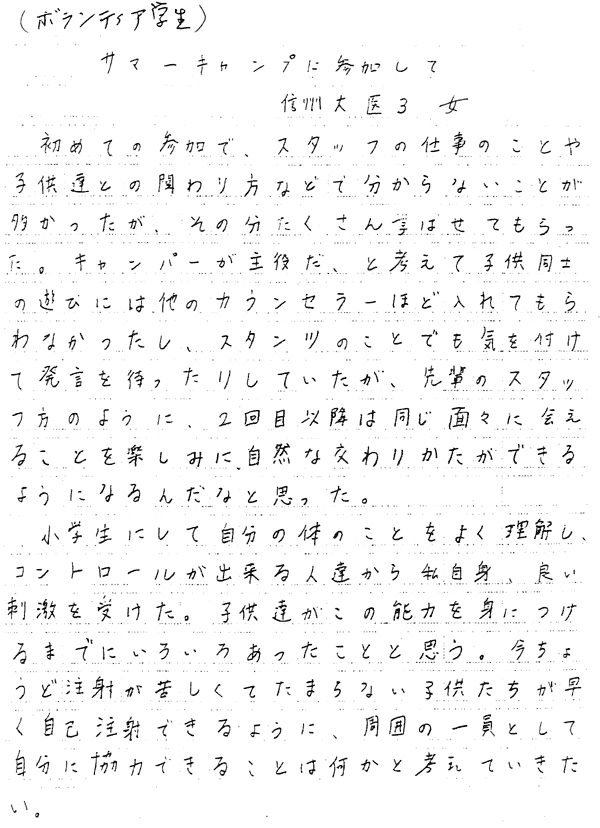 (ボランティア学生)
サマーキャンプに参加して
信州大医3 女
初めての参加で、スタッフの仕事のことや
子供達との関わり方などで分からないことが
多かったが、その分たくさん学ばせてもらっ
た。キャンパーが主役だ、と考えて子供同士
の遊びには他のカウンセラーほど入れてもら
わなかったし、スタンツのことでも気を付け
て発言を待ったりしていたが、先輩のスタッ
フ方のように、2回目以降は同じ面々に会え
ることを楽しみに自然な交わりかたができる
ようになるんだなと思った。
小学生にして自分の体のことをよく理解し、
コントロールが出来る人達から私自身、良い
刺激を受けた。子供達がこの能力を身につけ
るまでにいろいろあったことと思う。今ちょ
うど注射が苦しくてたまらない子供たちが早
く自己注射できるように、周囲の一員として
自分に協力できることは何かと考えていきた
い。